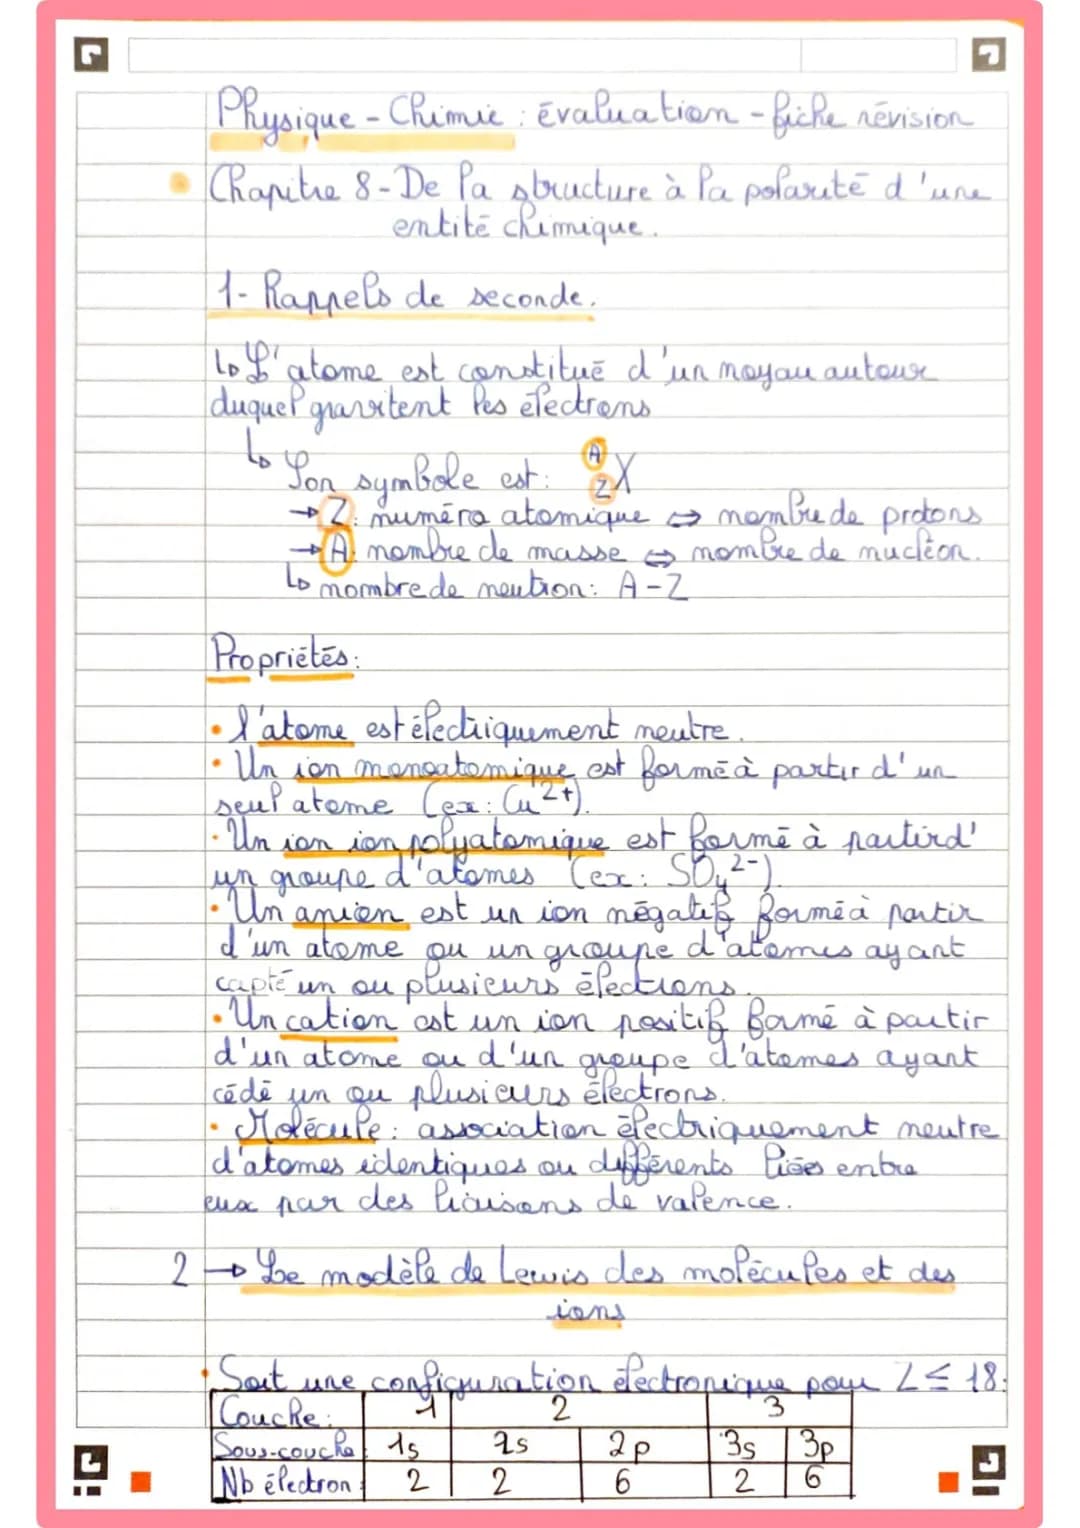 Physique - Chimie : évaluation - fiche révision
Chapitre 8 - De la structure à la polarité d'une
entité chimique.
1- Rappels de seconde.
↳ L'atome est constitué d'un noyau autour
duquel gravitent les électrons
↳ Son symbole est : A Z X
→ Z : numéro atomique ⇔ nombre de protons
→ A : nombre de masse ⇔ nombre de nucléon.
↳ nombre de neutron : A - Z
Propriétés :
• l'atome est électriquement neutre.
• Un ion monoatomique est formé à partir d'un
seul atome (ex : Cu²⁺).
• Un ion ion polyatomique est formé à partir d'
un groupe d'atomes (ex : SO₄²⁻)
• Un anion est un ion négatif formé à partir
d'un atome ou un groupe d'atomes ayant
capté un ou plusieurs électrons.
• Un cation est un ion positif formé à partir
d'un atome ou d'un groupe d'atomes ayant
cédé un ou plusieurs électrons.
• Molécule : association électriquement neutre
d'atomes identiques ou différents liées entre
eux par des liaisons de valence.
2 → Le modèle de Lewis des molécules et des
ions
• Soit une configuration électronique pour Z ≤ 18.
Couche : 1 2 3
Sous-couche 1s 2s 2p 3s 3p
Nb électron : 2 2 6 2 6